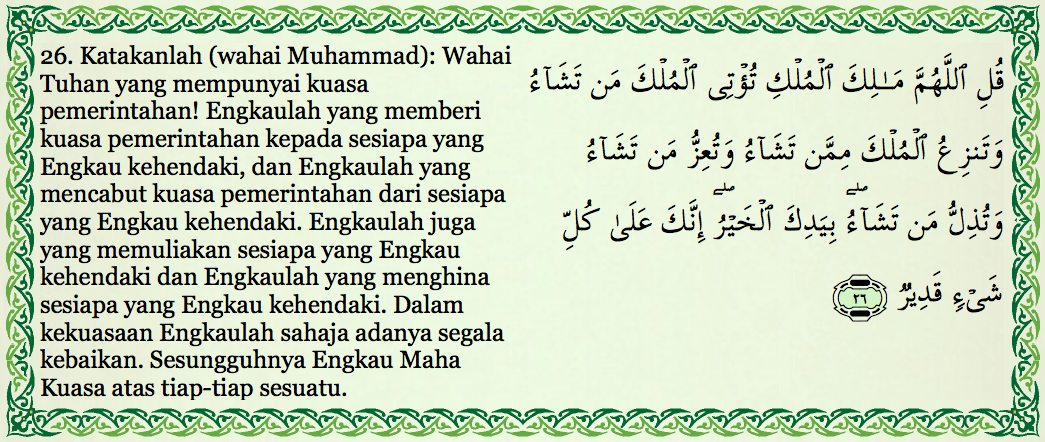 26. Katakanlah (wahai Muhammad): Wahai
Tuhan yang mempunyai kuasa
pemerintahan! Engkaulah yang memberi
kuasa pemerintahan kepada sesiapa yang
Engkau kehendaki, dan Engkaulah yang
mencabut kuasa pemerintahan dari sesiapa
yang Engkau kehendaki. Engkaulah juga
yang memuliakan sesiapa yang Engkau
kehendaki dan Engkaulah yang menghina
sesiapa yang Engkau kehendaki. Dalam
kekuasaan Engkaulah sahaja adanya segala
kebaikan. Sesungguhnya Engkau Maha
Kuasa atas tiap-tiap sesuatu.
قُلِ ٱللَّهُمَّ مَـٰلِكَ ٱلْمُلْكِ تُؤْتِى ٱلْمُلْكَ مَن تَشَآءُ
وَتَنزِعُ ٱلْمُلْكَ مِمَّن تَشَآءُ وَتُعِزُّ مَن تَشَآءُ
وَتُذِلُّ مَن تَشَآءُ ۖ بِيَدِكَ ٱلْخَيْرُ ۖ إِنَّكَ عَلَىٰ كُلِّ
شَىْءٍ قَدِيرٌ ٢٦